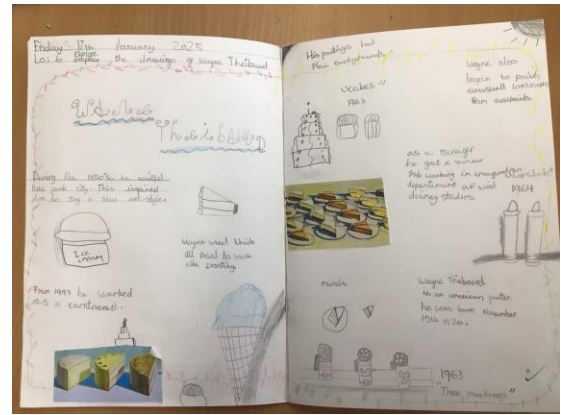 Friday 17th January 2025
Lo: to explore the drawings of Wayne Thiebaud
Wayne
Thiebaud
During the 1950's he visited
New york city. This inspired
him to try a new art-style.
Ice
cream
Wayne used thick
oil paint to look
like frosting.
From he worked
as a cartoonist.
His paintings had
Plain backgrounds
"cakes"
1963
Wayne also
began to paint
unusuall landscapes
from
as a teenager
he got a summer
Job working in
department at walt
disney studios
1964
Wayne Thiebaud
is an american painter
he was born November
15th 1920.
1963
"Three machines"